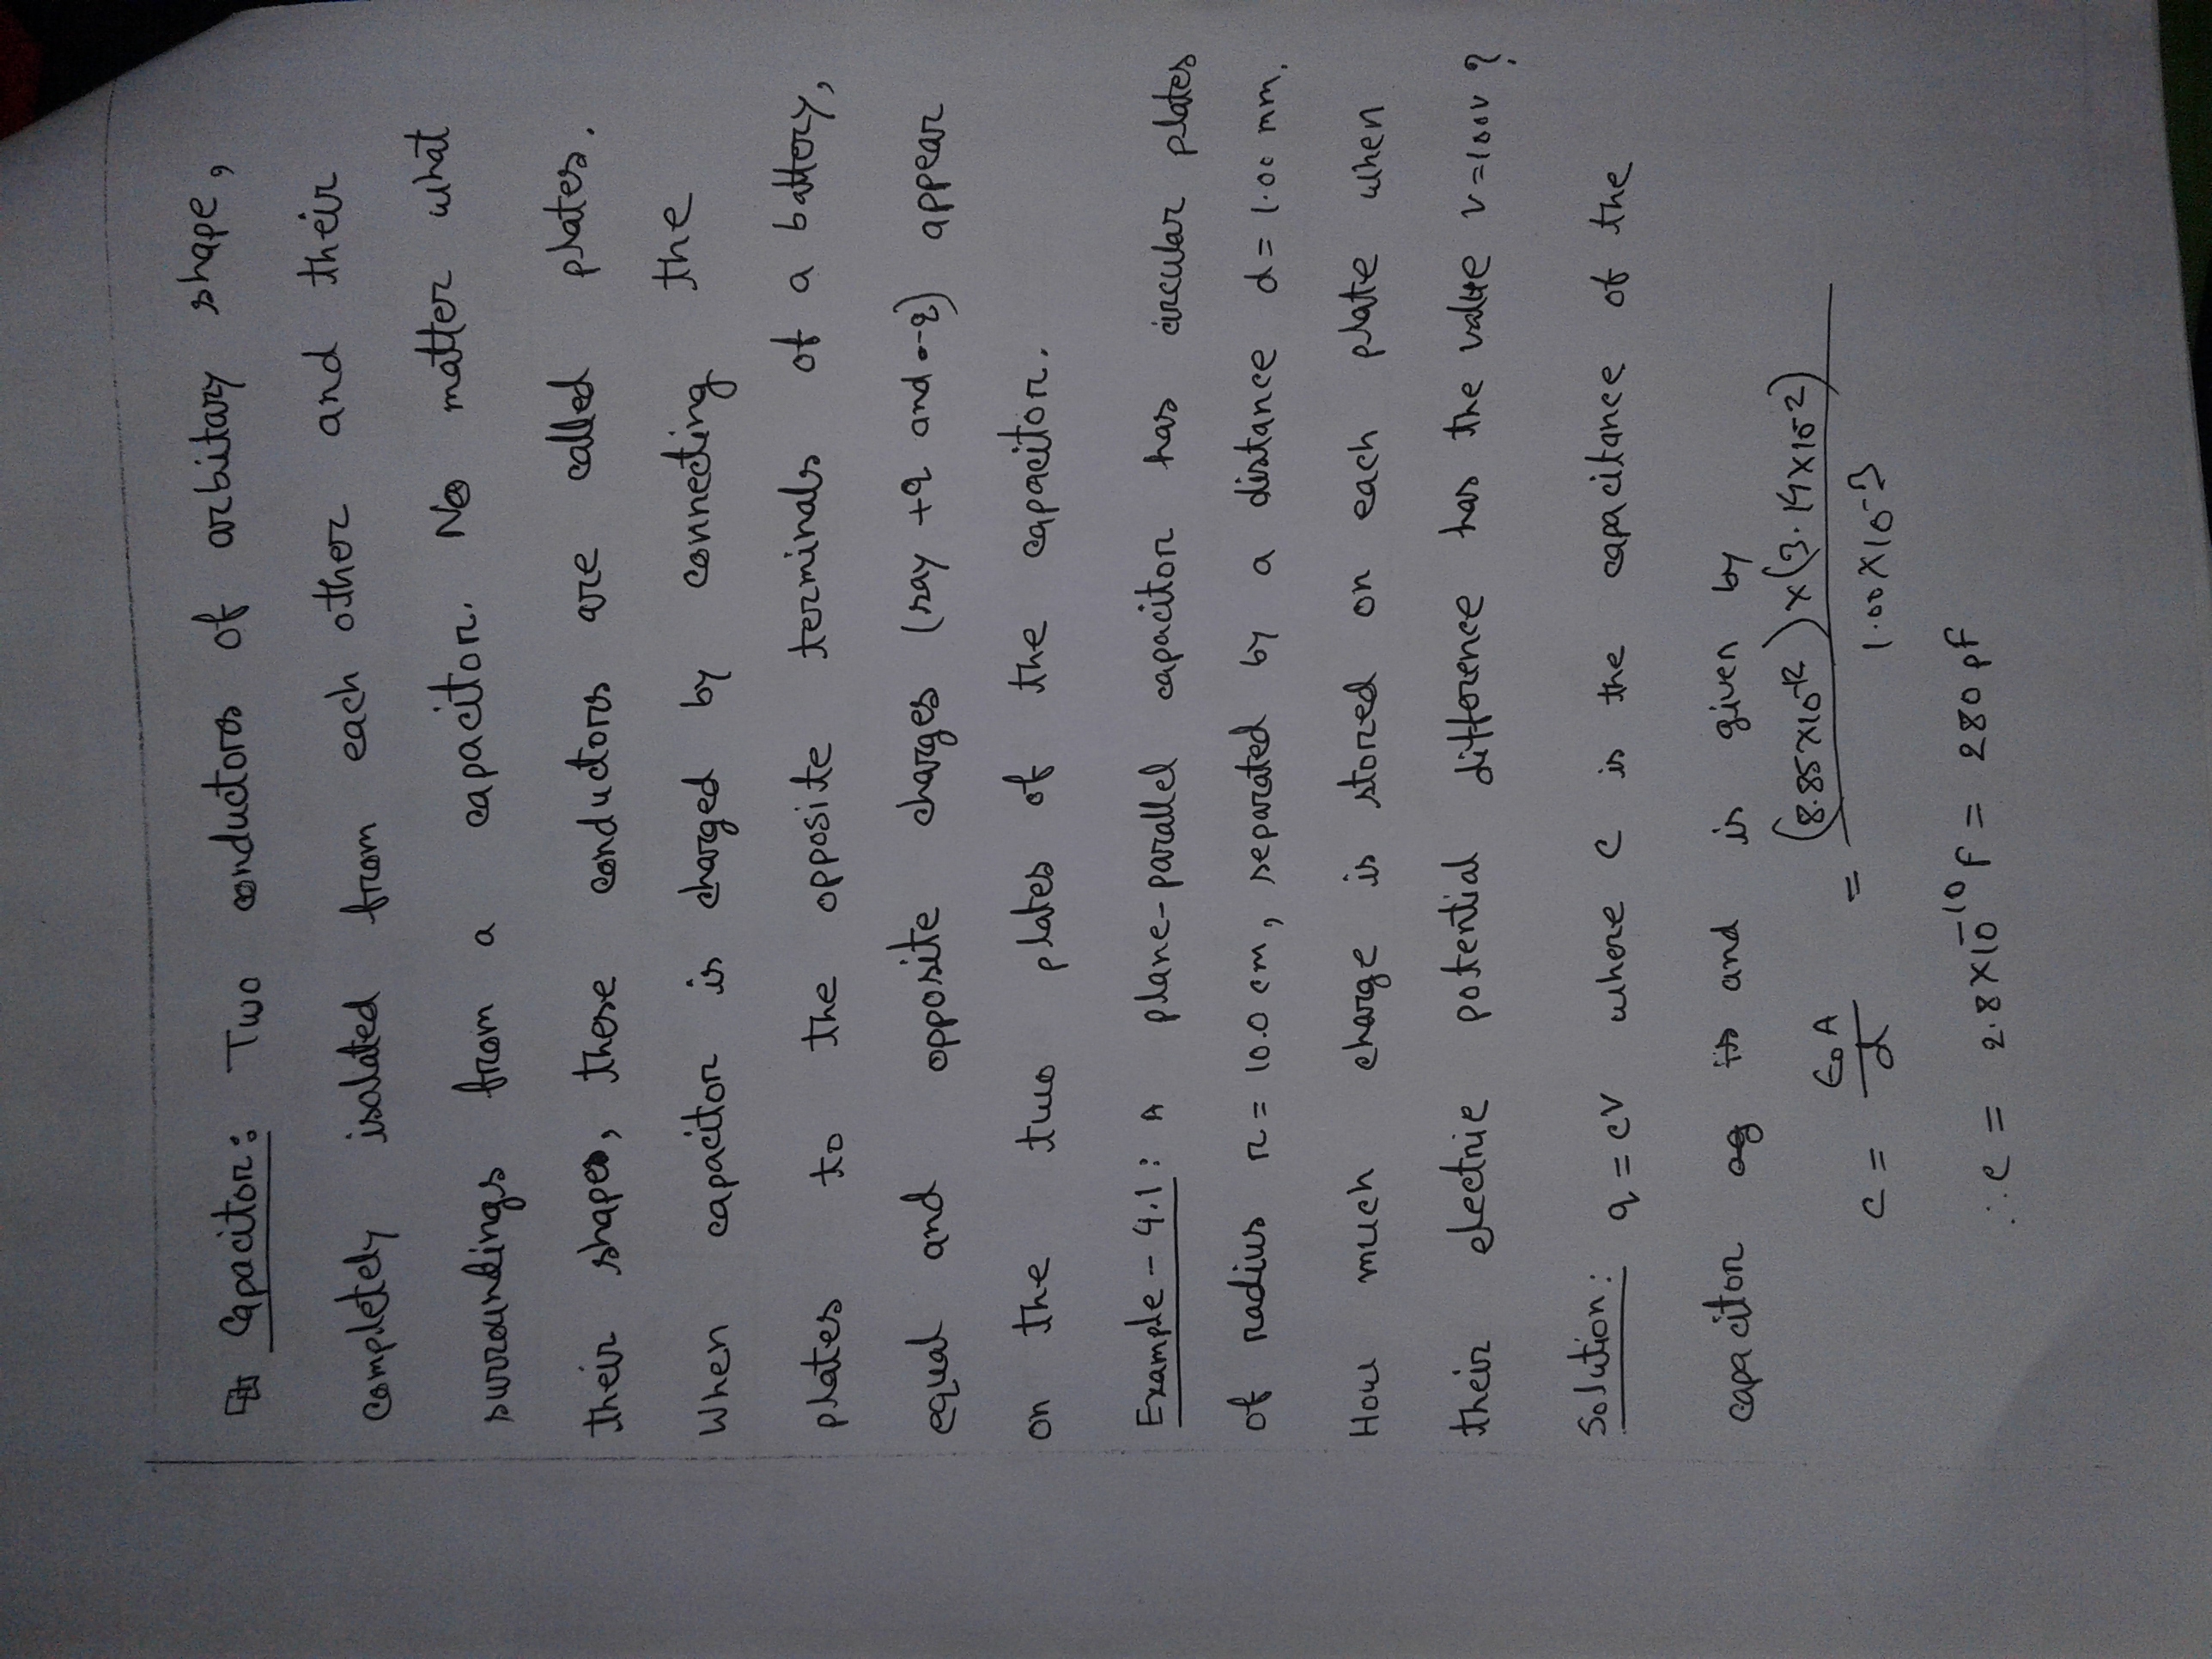 Capacitor: Two conductors of arbitary shape,
completely isolated from each other and their
surroundings from a capacitor. No matter what
their shapes, these conductors are called plates.
When capacitor is charged by connecting the
plates to the opposite terminals of a battery,
equal and opposite charges (say +q and -q) appear
on the two plates of the capacitor.
Example - 4.1: A plane-parallel capacitor has circular plates
of radius r = 10.0 cm, separated by a distance d = 1.00 mm.
How much charge is stored on each plate when
their electric potential difference has the value V=100V?
Solution: q = cV where C is the capacitance of the
capacitor and is given by
C = ε₀A/d = (8.85×10⁻¹²)×(3.14×10⁻²)/1.00×10⁻³
∴ c = 2.8×10⁻¹⁰ F = 280 pF